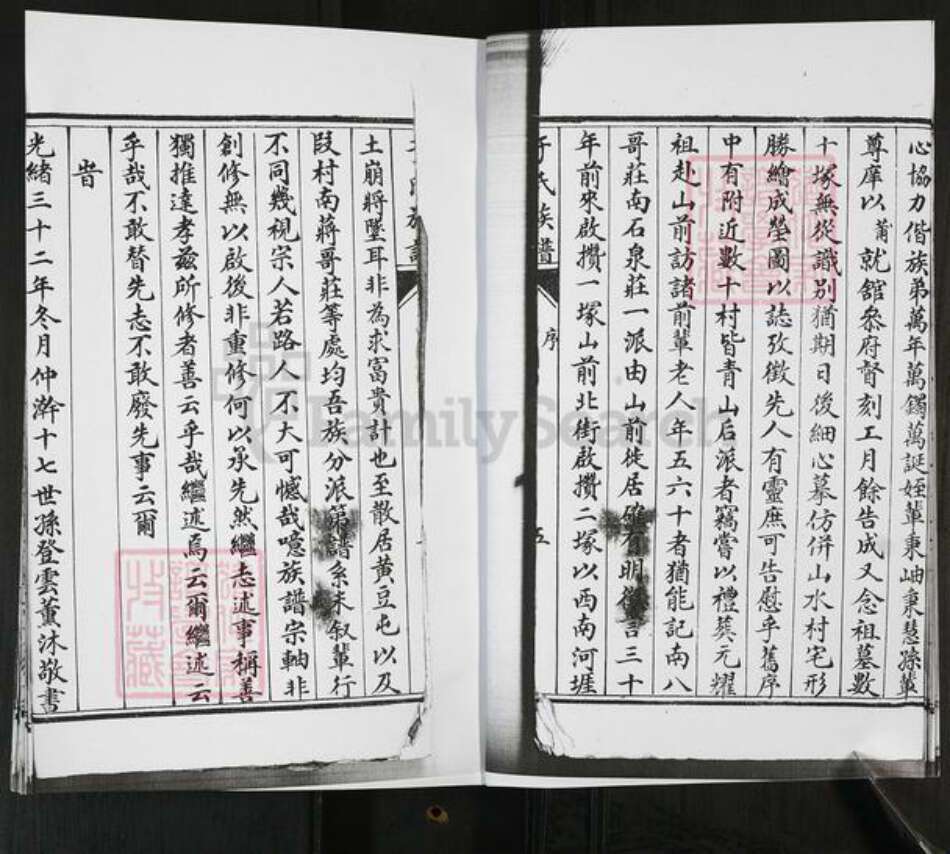 心協力偕族弟萬年萬鐲萬誕姪輩秉岫秉慧孫輩
尊庠以莆就舘叅府督刻工月餘告成又念祖墓數
十塚無從識别猶期日後細心摹仿併山水村宅形
勝繪成塋圖以誌攷徵先人有靈庶可告慰乎舊序
中有附近數十村皆青山后派者竊嘗以禮葬元耀
祖赴山前訪諸前輩老人年五六十者猶能記南八
哥莊南石泉莊一派由山前徙居確有明徵言三十
年前來啟攢一塚山前北街啟攢二塚以西南河堐
于氏族譜
序
五
土崩將墜耳非為求富貴計也至散居黄豆屯以及
叚村南蔣哥莊等處均吾族分派第譜系未叙輩行
不同幾視宗人若路人不大可憾哉噫族譜宗軸非
創修無以啟後非重修何以承先然繼志述事稱善
獨推達孝兹所修者善云乎哉繼述焉云爾繼述云
乎哉不敢替先志不敢廢先事云爾
旹
光緒三十二年冬月仲澣十七世孫登雲薰沐敬書
FamilySearch